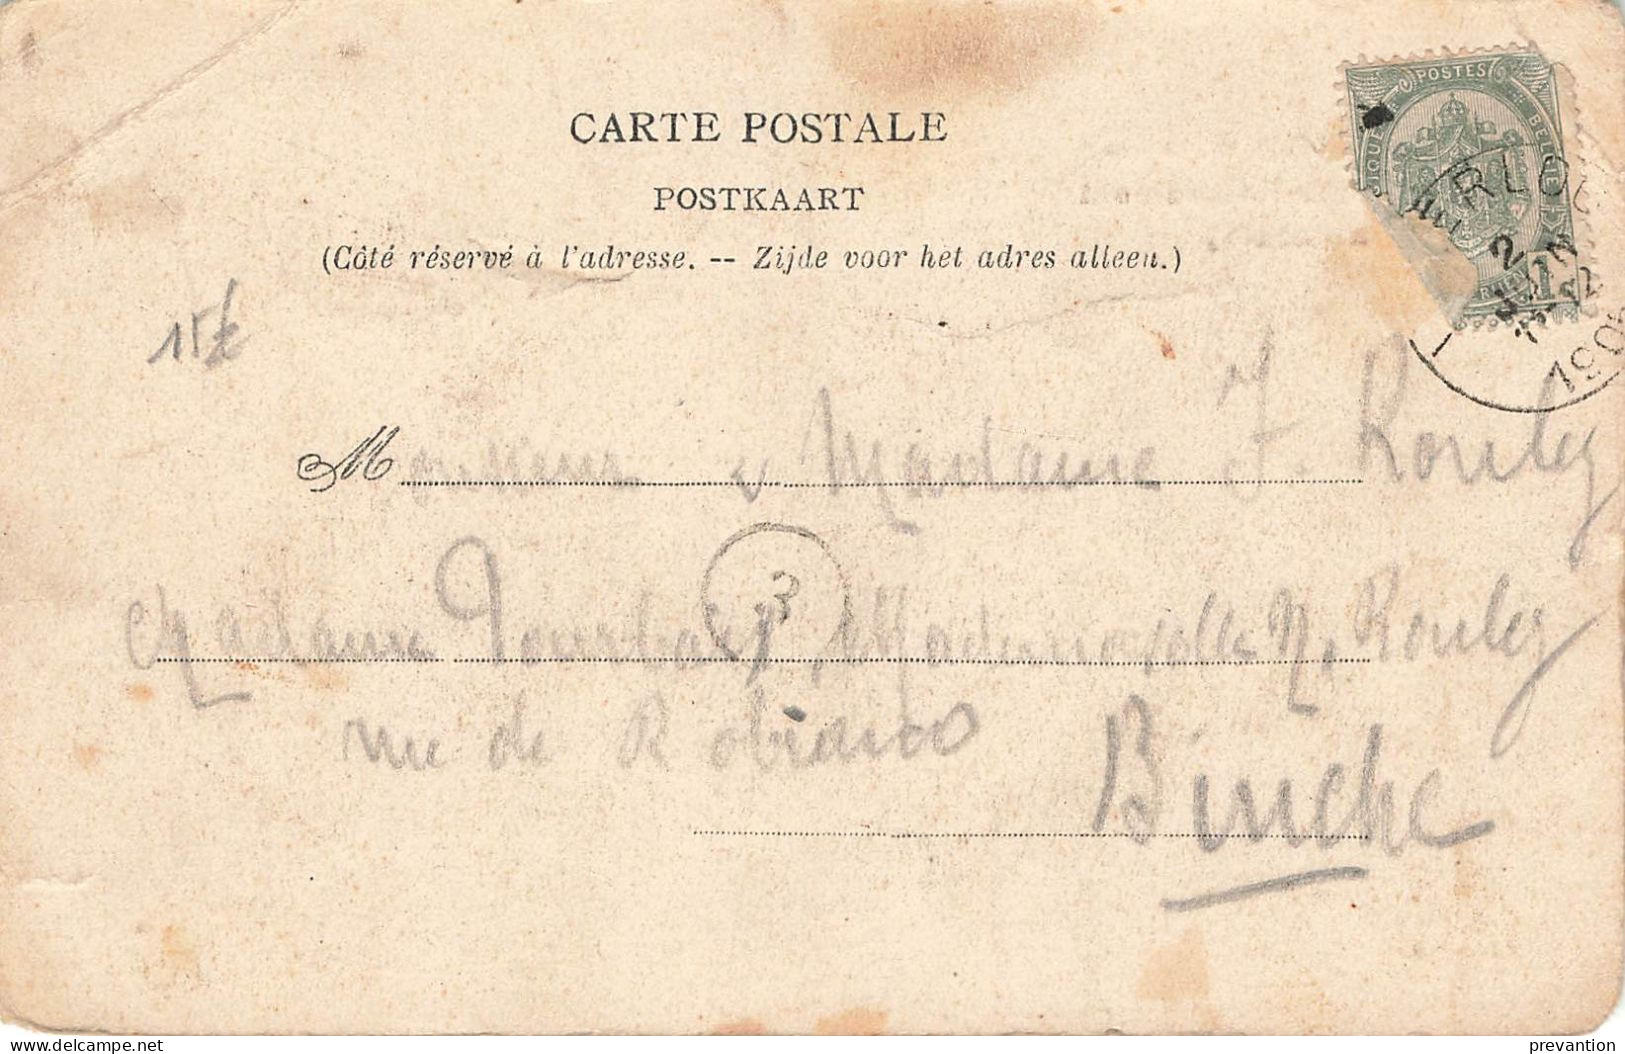 CARTE POSTALE
POSTKAART
(Côté réservé à l'adresse. -- Zijde voor het adres alleen.)
POSTES
BELGI
1
RLO
2
JUIN
12
190
15€
Monsieur & Madame J. Rouley
3
Madame Mademoiselle Rouley
rue de Robiano
Binche
delcampe.net
prevantion